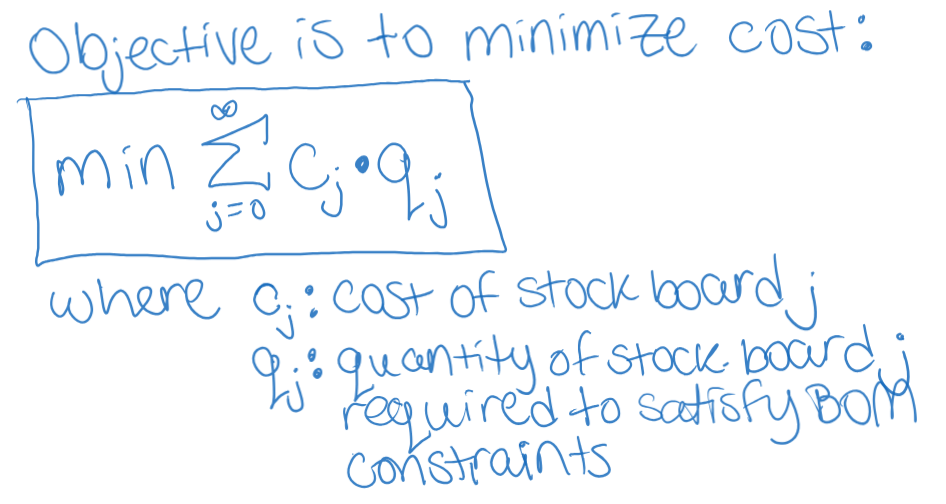 Objective is to minimize cost:
min ∞ Σ j=0 Cj • qj
where cj: cost of stock board j
qj: quantity of stock board j
required to satisfy BOM
constraints